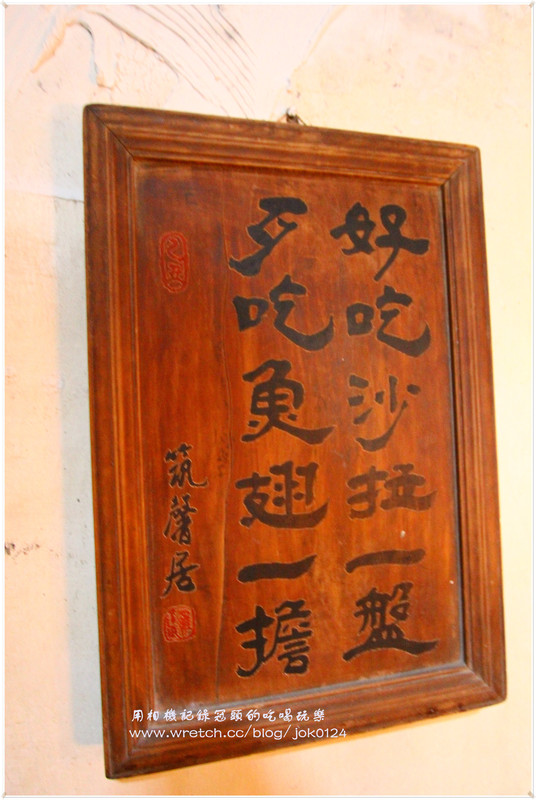 好吃沙拉一盤
歹吃魚翅一擔
筑馨居
用相機記錄冠頤的吃喝玩樂
www.wretch.cc/blog/jok0124